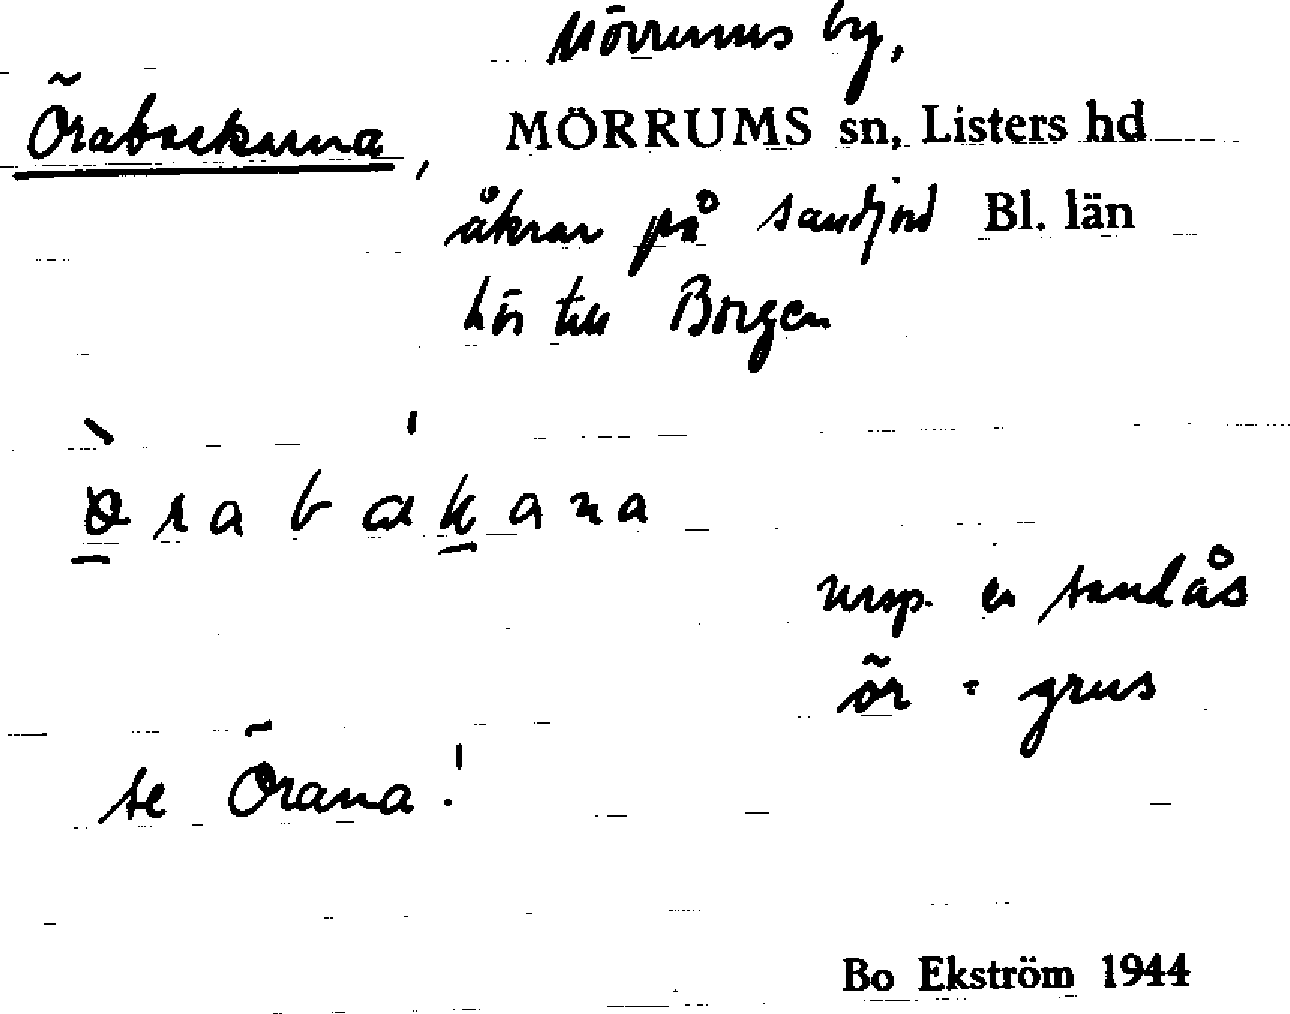 Mörrums by,
Örabackarna, MÖRRUMS sn, Listers hd
åkrar på sandjord Bl. län
hör till Borgen
ørabakana
ursp. en sandås
ör = grus
se Örana!
Bo Ekström 1944